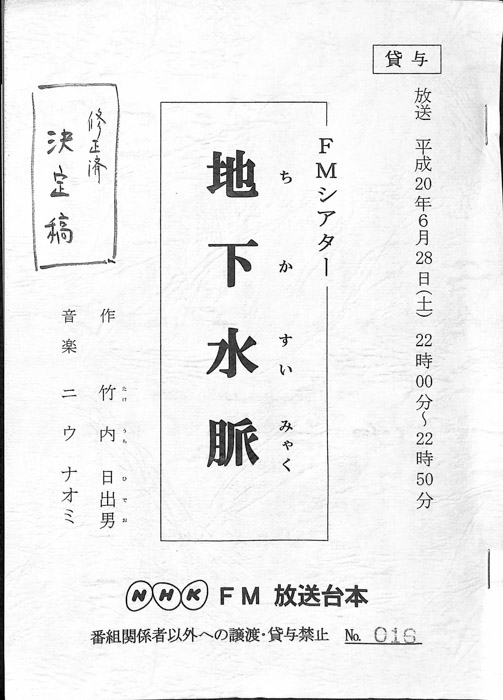 貸与
放送 平成20年6月28日(土) 22時00分〜22時50分
FMシアター
ちかすいみゃく
地下水脈
修正済
決定稿
作 竹内日出男
たけうちひでお
音楽 ニウナオミ
NHK FM 放送台本
番組関係者以外への譲渡・貸与禁止 No. 016